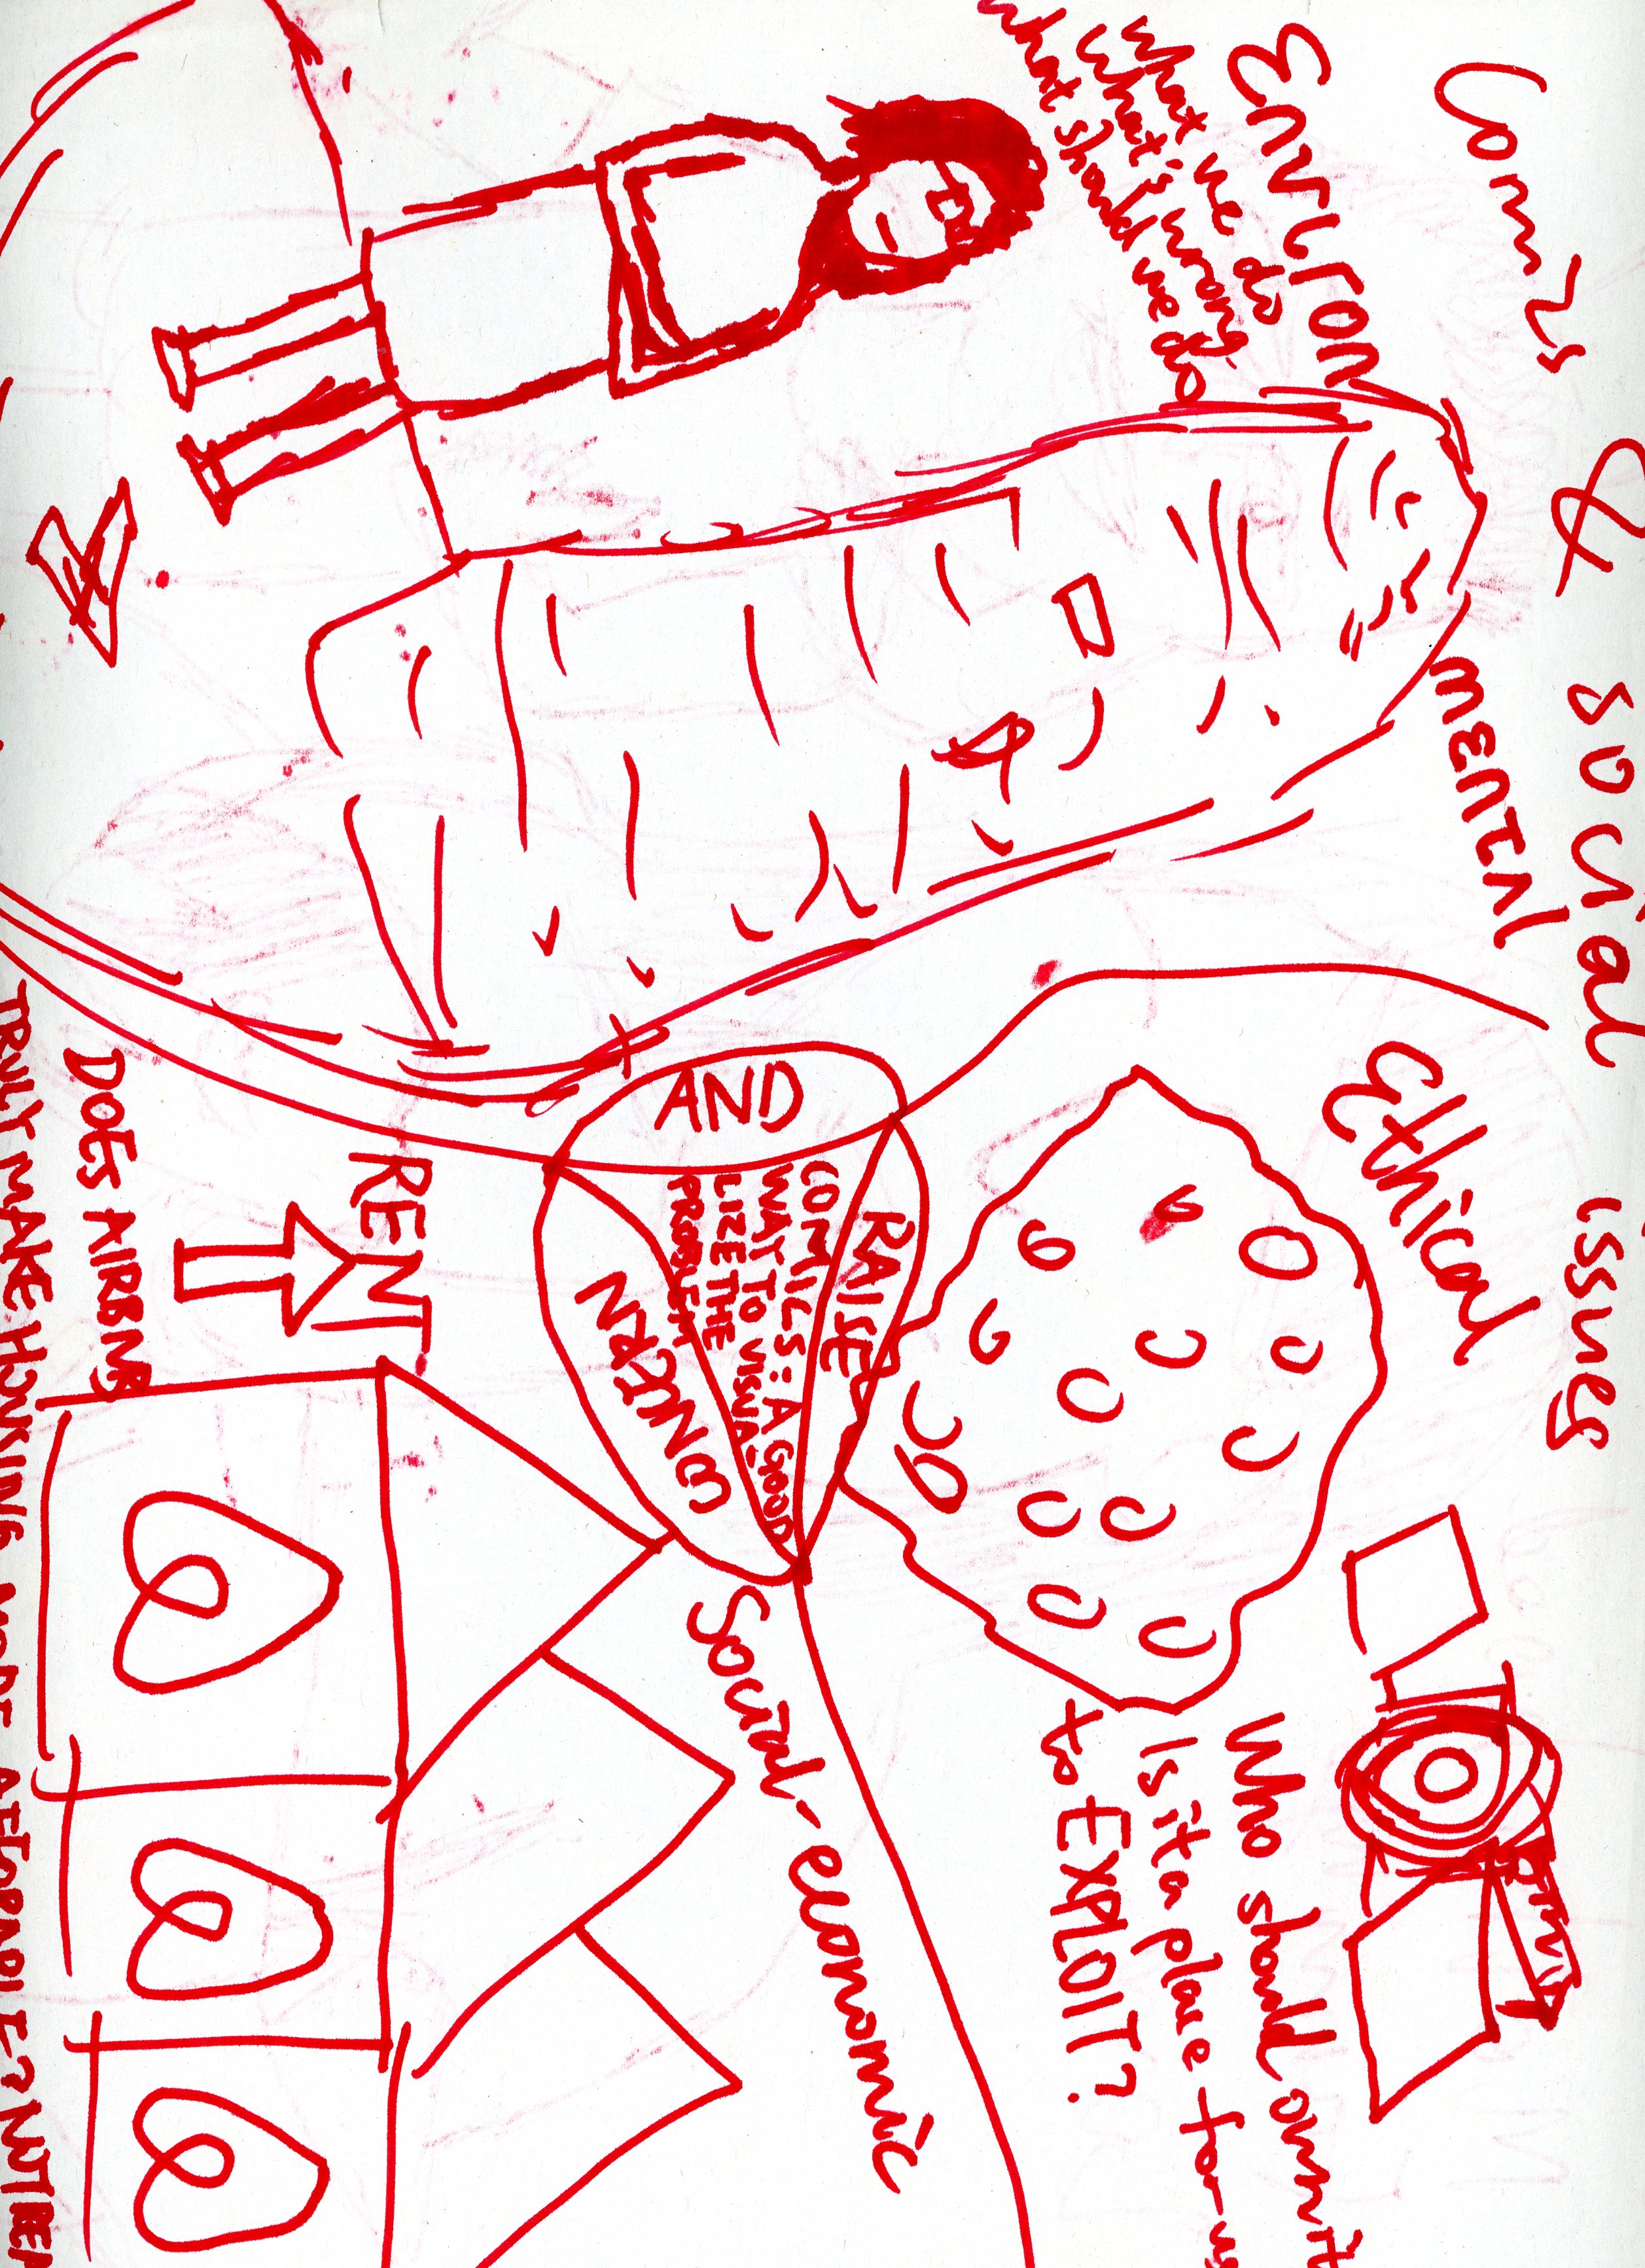 Comics & social issues
Environ mental
what we do
what's wrong
what should we do
Ethical
Who should own it
Is it a place for us
to EXPLOIT?
AND
RAISE
COMICS: A GOOD
WAY TO VISUA-
LIZE THE
PROBLEM
CONCERN
Social-economic
RENT
DOES AIRBNB
TRULY MAKE HOUSING MORE AFFORDABLE?